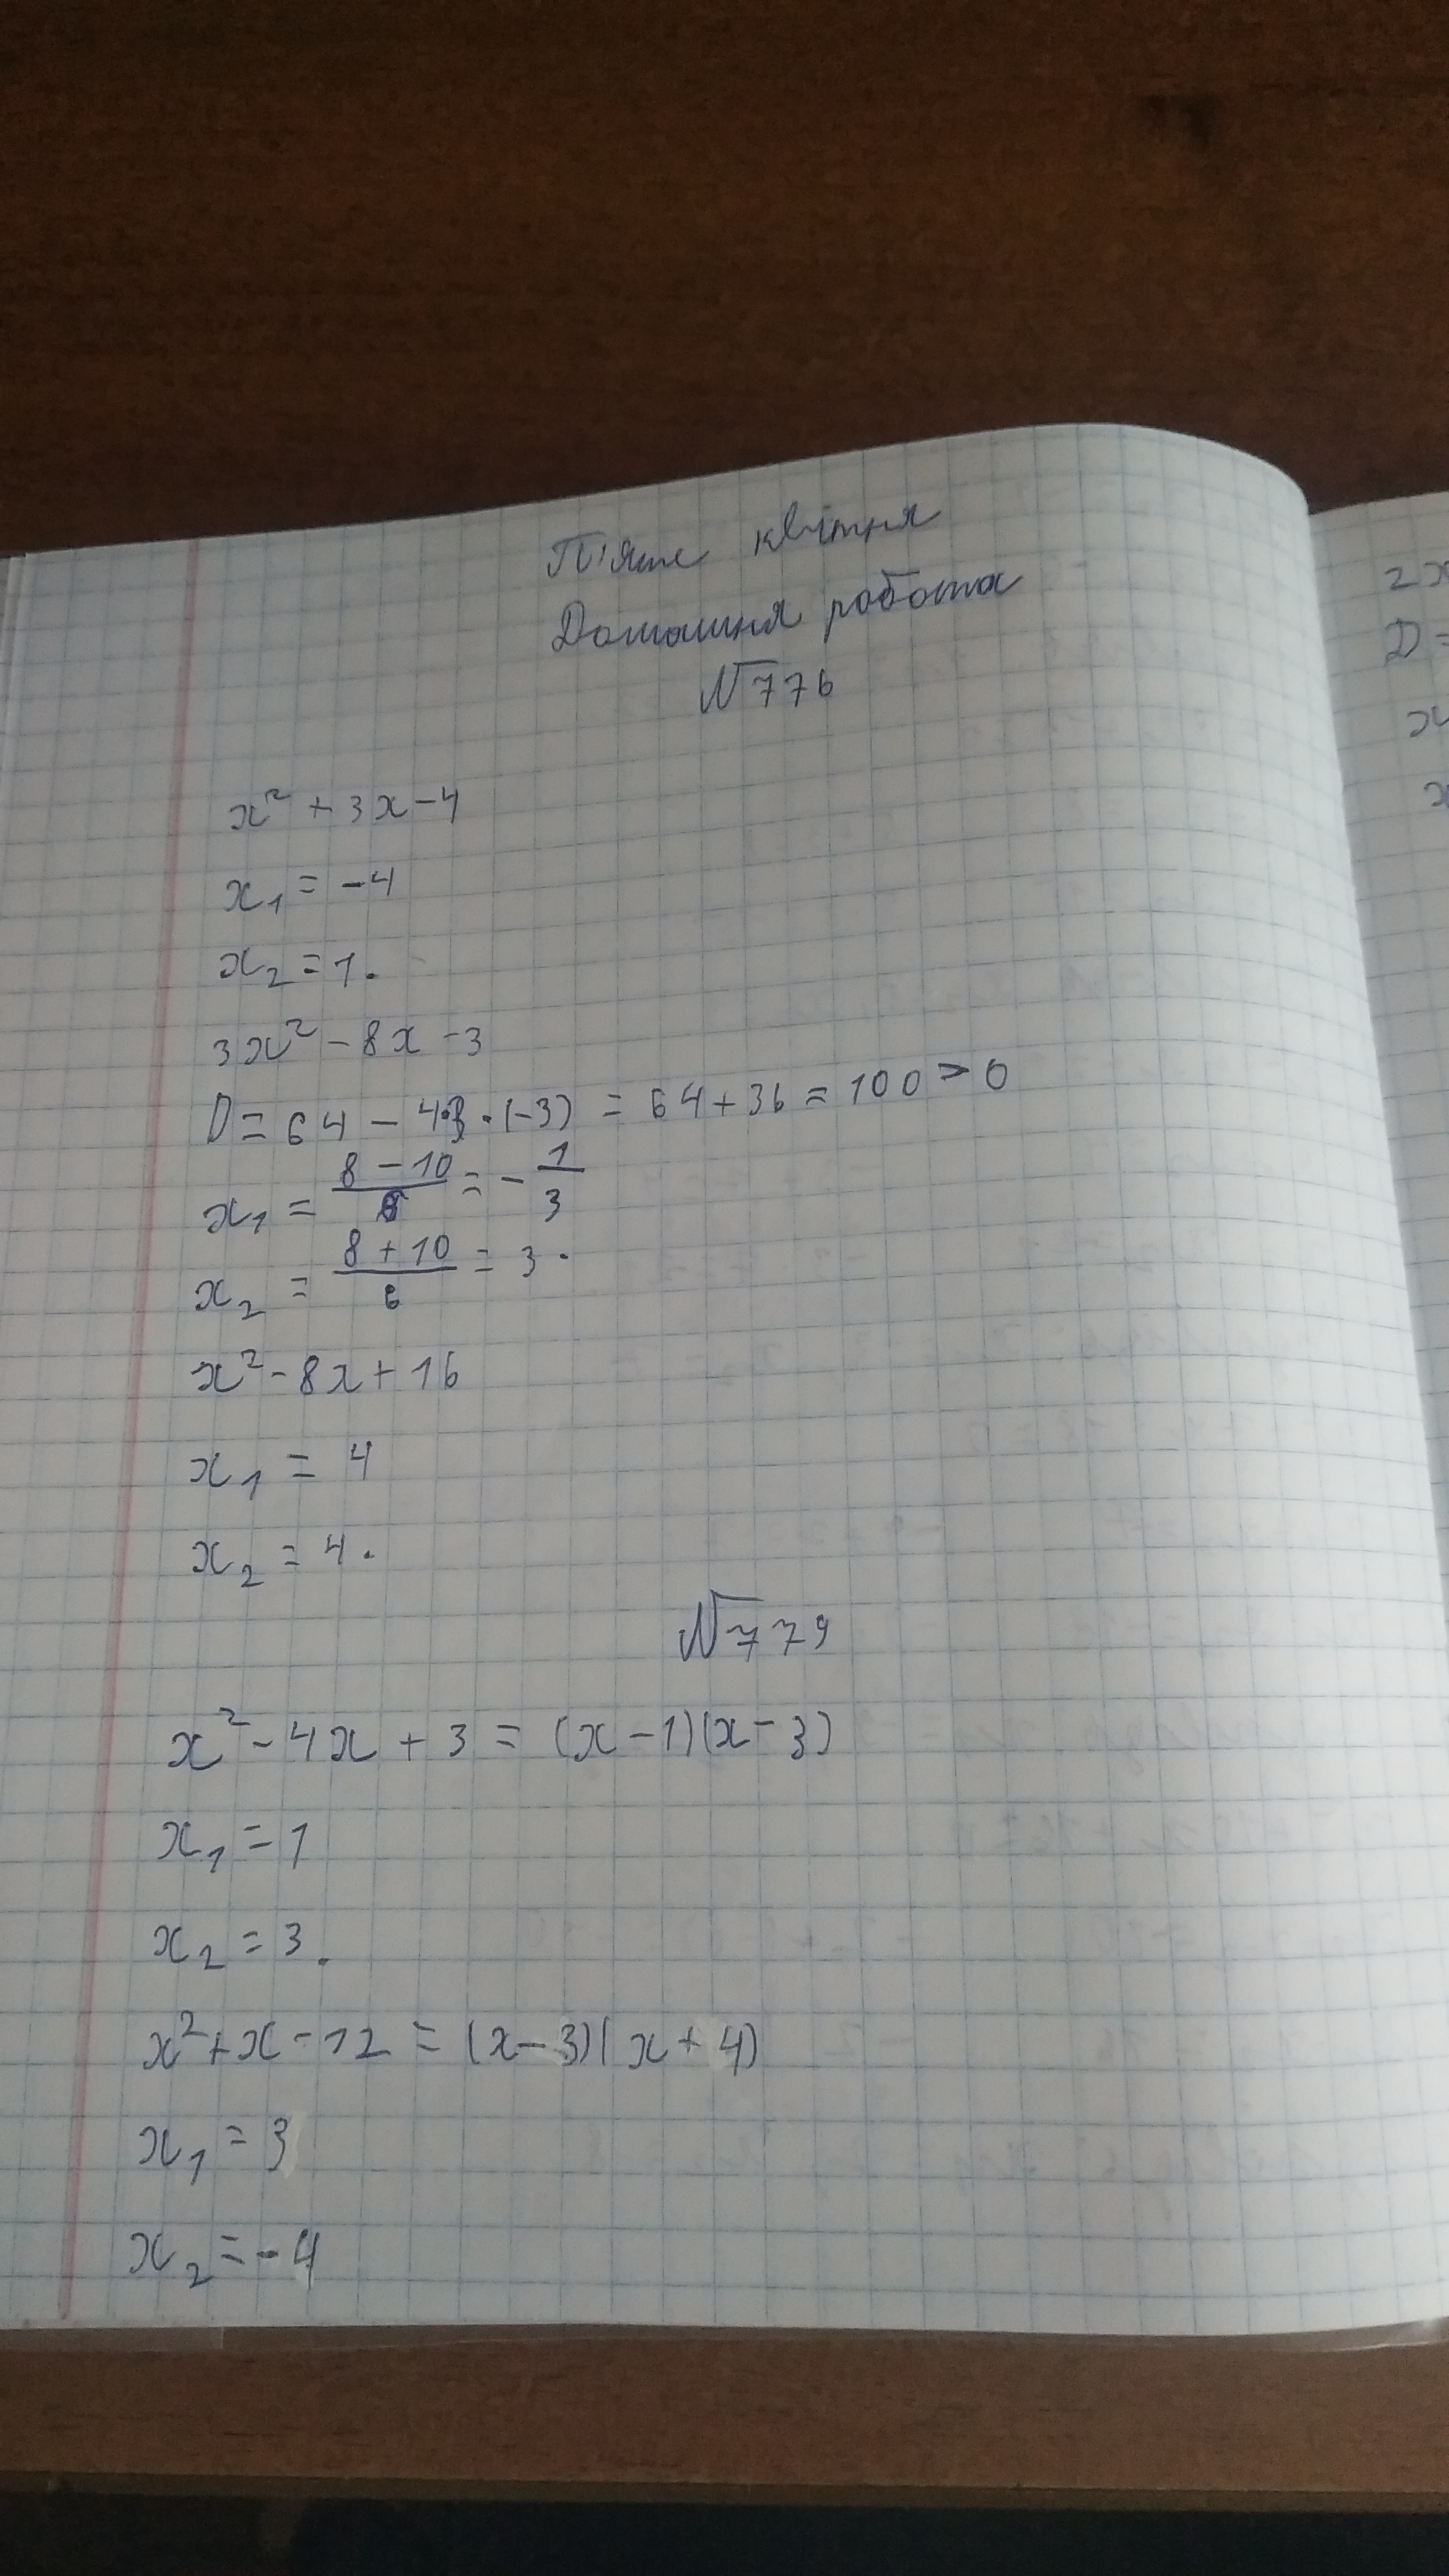 П'яте квітня
Домашня робота
№776
x² + 3x - 4
x₁ = -4
x₂ = 1.
3x² - 8x - 3
D = 64 - 4·3·(-3) = 64 + 36 = 100 > 0
x₁ = (8 - 10)/6 = -1/3
x₂ = (8 + 10)/6 = 3.
x² - 8x + 16
x₁ = 4
x₂ = 4.
№779
x² - 4x + 3 = (x - 1)(x - 3)
x₁ = 1
x₂ = 3.
x² + x - 12 = (x - 3)(x + 4)
x₁ = 3
x₂ = -4
2x
D =
x
x